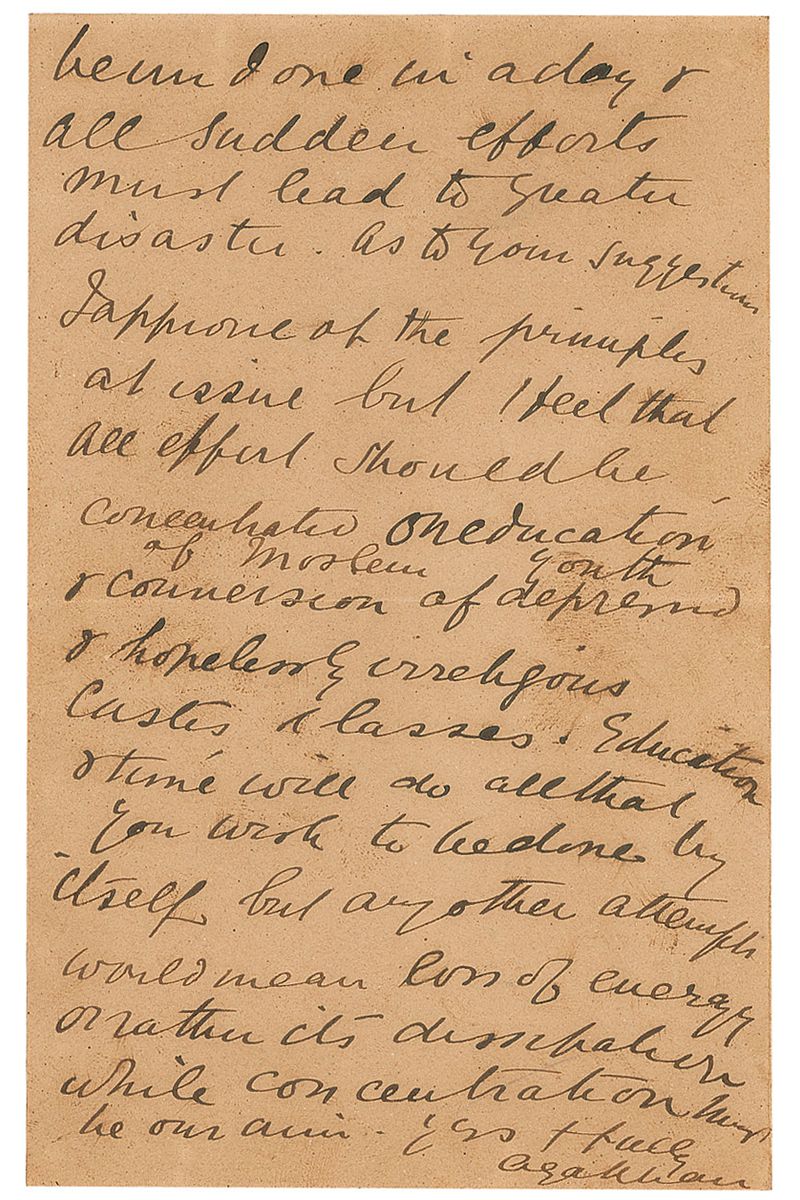 be un done in a day &
all sudden efforts
must lead to greater
disaster. As to your suggestions
I approve of the principles
at issue but I feel that
all effort should be
concentrated on education
of Moslem youth
& conversion of depressed
& hopelessly irreligious
Castes & lasses. Education
& time will do all that
you wish to be done by
itself but any other attempts
would mean loss of energy
or rather its dissipation
while concentration must
be our aim. Yrs tfully
Aga Khan